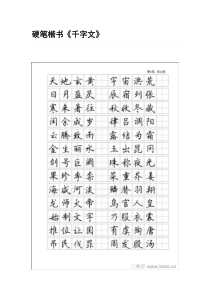 硬笔楷书《千字文》
天地玄黄 宇宙洪荒
日月盈昃 辰宿列张
寒来暑往 秋收冬藏
闰余成岁 律吕调阳
云腾致雨 露结为霜
金生丽水 玉出昆冈
剑号巨阙 珠称夜光
果珍李柰 菜重芥姜
海咸河淡 鳞潜羽翔
龙师火帝 鸟官人皇
始制文字 乃服衣裳
推位让国 有虞陶唐
吊民伐罪 周发殷汤